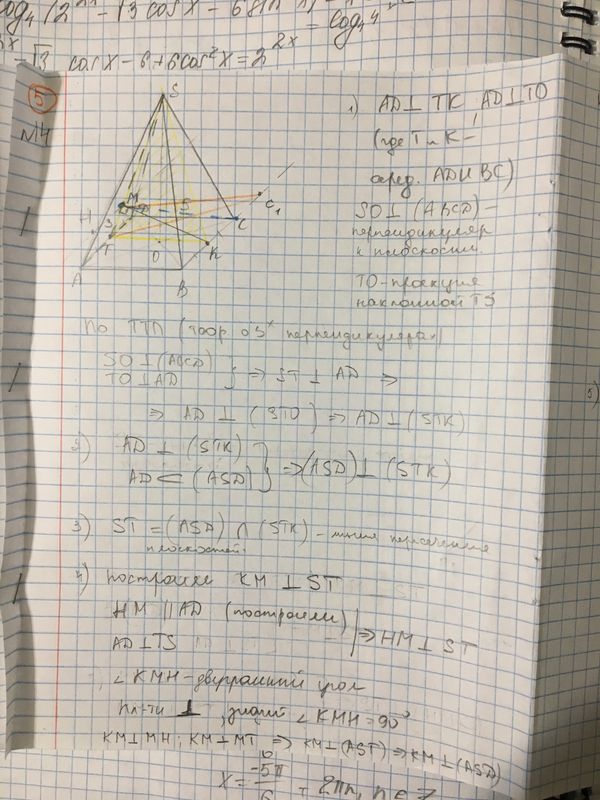 cosx - 6 + 6cos²x = 2^2x
5
№14
S
M
H
T
A
O
B
K
C
C₁
1) AD⊥TK, AD⊥TO
(где T и K -
серед. AD и BC)
SO⊥(ABCD) -
перпендикуляр
к плоскости.
TO - проекция
наклонной TS
По ТТП (теор о 3ˣ перпендикулярах)
SO⊥(ABCD)
TO⊥AD } ⇒ ST⊥AD ⇒
⇒ AD⊥(STO) ⇒ AD⊥(STK)
2) AD⊥(STK)
AD⊂(ASD) } ⇒ (ASD)⊥(STK)
3) ST = (ASD)∩(STK) - линия пересечения
плоскостей.
4) построили KM⊥ST
HM∥AD (построили)
AD⊥TS } ⇒ HM⊥ST
∠KMH - двугранный угол
пл-ти ⊥, значит ∠KMH=90°
KM⊥MH; KM⊥MT ⇒ KM⊥(AST) ⇒ KM⊥(ASD)
5)